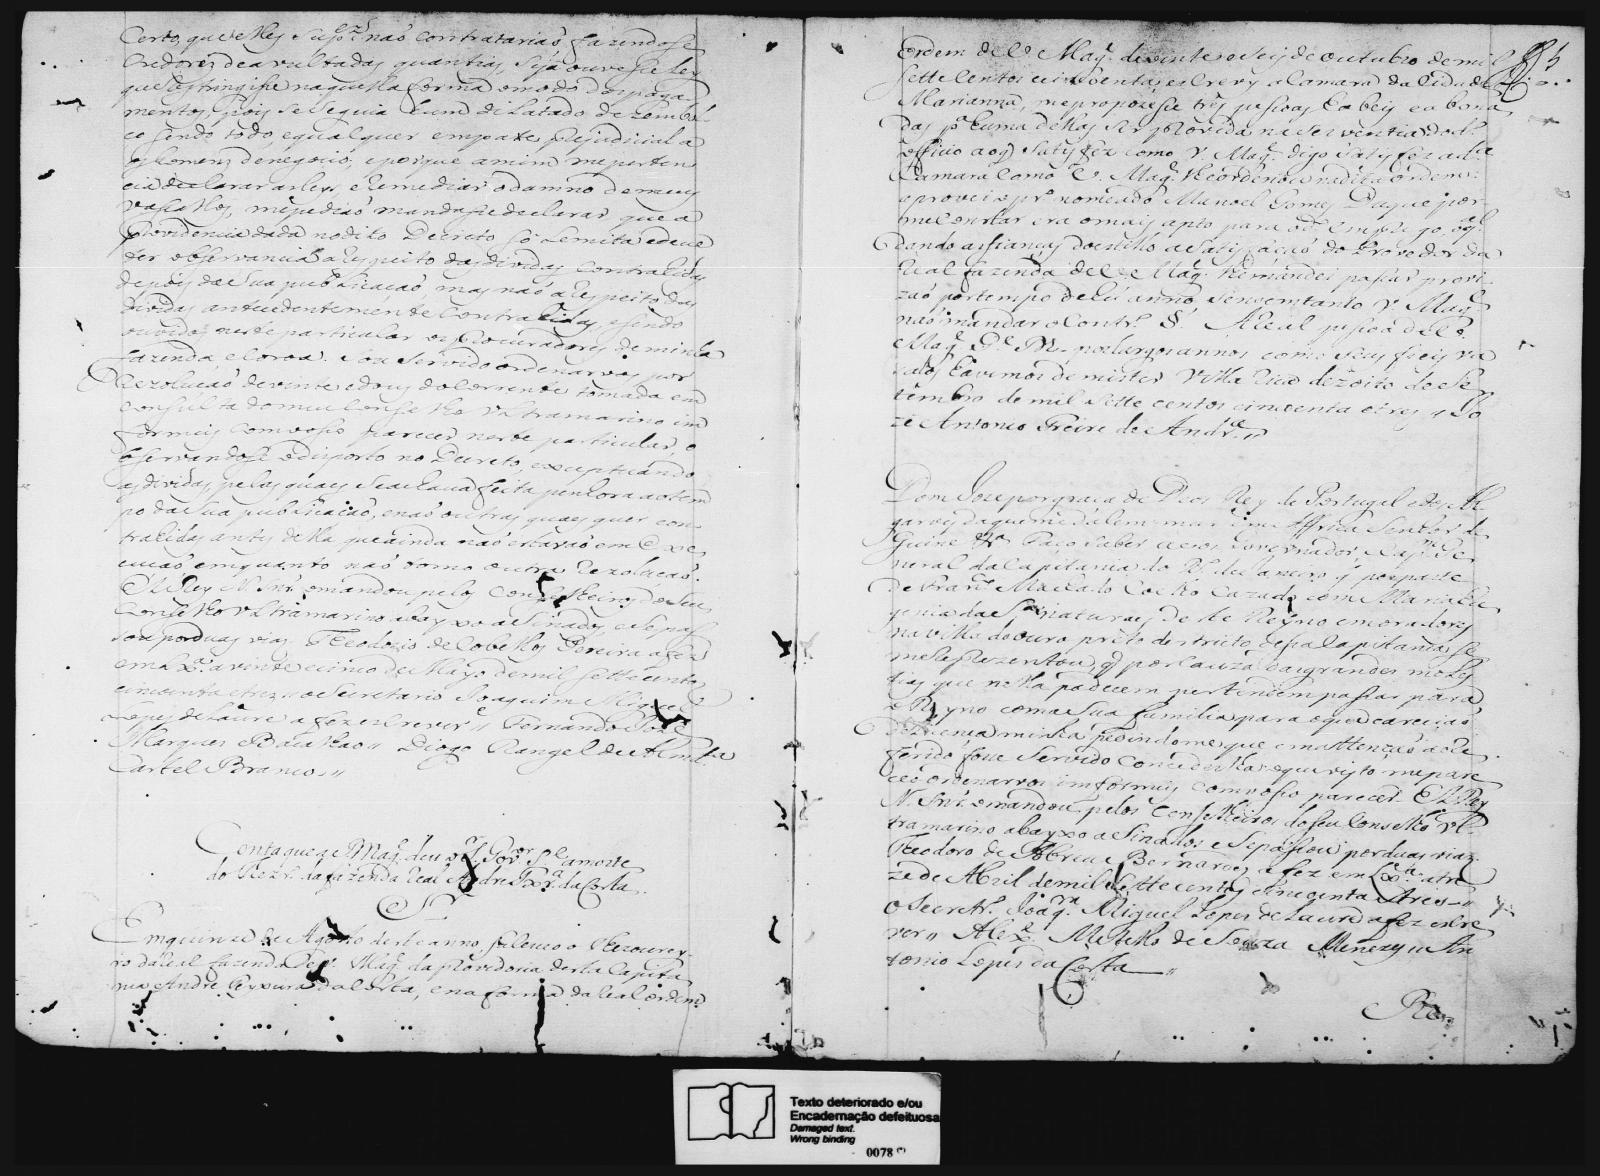 Certo, que elles Supp.es naõ contratariaõ fazendose
Credores de avultadas quantias, Seja ouvese Ley
que restringise naquella forma o modo do paga-
mento, pois se Seguia hum dilatado dezembol-
ço sendo todo, e qualquer empate prejudicial a
os homens de negocio, e porque a mim me perten
cia declarar as leys, e remediar o damno de meus
vassallos, me pediaõ mandase declarar, que a
Providencia dada no dito Decreto só Limita e deve
ter observancia a respeito das dividas contrahidas
depois da Sua publicaçaõ mas naõ a respeito das
dividas antecedentemente contrahidas, e sendo
ouvidos neste particular os Procuradores de minha
fazenda, e Coroa. Sou Servido ordenarvos por
Rezoluçaõ de vinte e dous do Corrente tomada em
consulta do meu Conselho Ultramarino in
formeis com vosso parecer neste particular, o
bservandose o disposto no Decreto, exceptuando
as dividas, pelas quaes Se achava feita penhora ao tem
po da Sua publicaçaõ, e naõ outras quaes quer con
trahidas antes della que ainda naõ estavaõ em Exe
cuçaõ emquanto naõ tomo outra Rezoluçaõ.
El Rey N. Snr. o mandou pelos Conselheiros do Seu
Conselho Ultramarino abayxo aSinados, e Se pas
sou por duas vias. Theodozio de Cobellos Pereira a fez
em Lx.a a vinte e cinco de Mayo de mil settecentos
cincoenta e tres // o Secretario Joaquim Miguel
Lopes de Lavre a fez escrever // Fernando Jozé
Marques Bacalhao // Diogo Rangel de Almeida
Castel Branco //
Conta que a e Mag.e deu o Il.mo Gov.or S.e a morte
do Thezr.o da fazenda Real Andre Teyx.ra da Costa
Sr.
Em quinze de Agosto deste anno faleceo o Thezourey-
ro da Real fazenda de V. Mag.e da Provedoria desta Capita
nia Andre Teyxeira da Costa, e na forma da Real ordem
85
Ordem de V. Mag.e de vinte e Seis de Outubro de mil
sette centos e cincoenta, escrevy a Camara da Cidade
Marianna, me propozese tres pessoas habeis e abona
das p.a huma dellas Ser provida na Serventia do d.o
Officio ao q Satisfez como V. Mag.e digo Satisfez a d.a
Camara como V. Mag.e lhe ordenou na dita ordem
e provei o pr.o nomeado Manoel Gomes Daque por
me constar era o mais apto para o d.o Emprego, o q.l
dando as fianças do estillo a Satisfaçaõ do Provedor da
Real fazenda de V. Mag.e lhe mandei passar provi
zaõ por tempo de hu anno, Se no emtanto V. Mag.e
naõ mandar o Contr.o §. A Real pessoa de V.
Mag.e G.e D.s por largos annos como Seus fieis va
sallos havemos de mister Villa Rica dezoito de Se
tembro de mil Sette centos cincoenta e tres // Jo
ze Antonio Freire de Andr.e //
Dom Joze por graça de Deos Rey de Portugal e dos Al
garves daquem e dalem mar em Affrica Senhor de
Guine &.a Faço saber a vos Governador, e Cap.m Ge
neral da Capitania do R.o de Janeiro q por parte
de Fran.co Machado Coelho Cazado com Maria Eu
genia da S.a naturaes deste Reyno e moradores
na villa do ouro preto destricto desta Capitania se
me Reprezentou, q por cauza das grandes moles
tias que nella padecem pertendem passar para
o Reyno com a Sua familia para o que careciaõ
de licença minha pedindome que em attençaõ ao re
ferido fose Servido Concederlha: e que visto me pare
ceo ordenarvos informeis com vosso parecer. El Rey
N. Snr. o mandou pelos Conselheiros do seu Conselho Ul-
tramarino abayxo aSinados e Se passou por duas vias
Theodoro de Abreu Bernardes a fez em Lx.a a tre
ze de Abril de mil e Sette centos cincoenta e tres //
O Secretr.o Joaq.m Miguel Lopes de Lavre a fez escre
ver // Alex.e Metello de Souza Menezes // An
tonio Lopes da Costa //
Re
Texto deteriorado e/ou
Encadernação defeituosa
Damaged text.
Wrong binding
0078 (*)